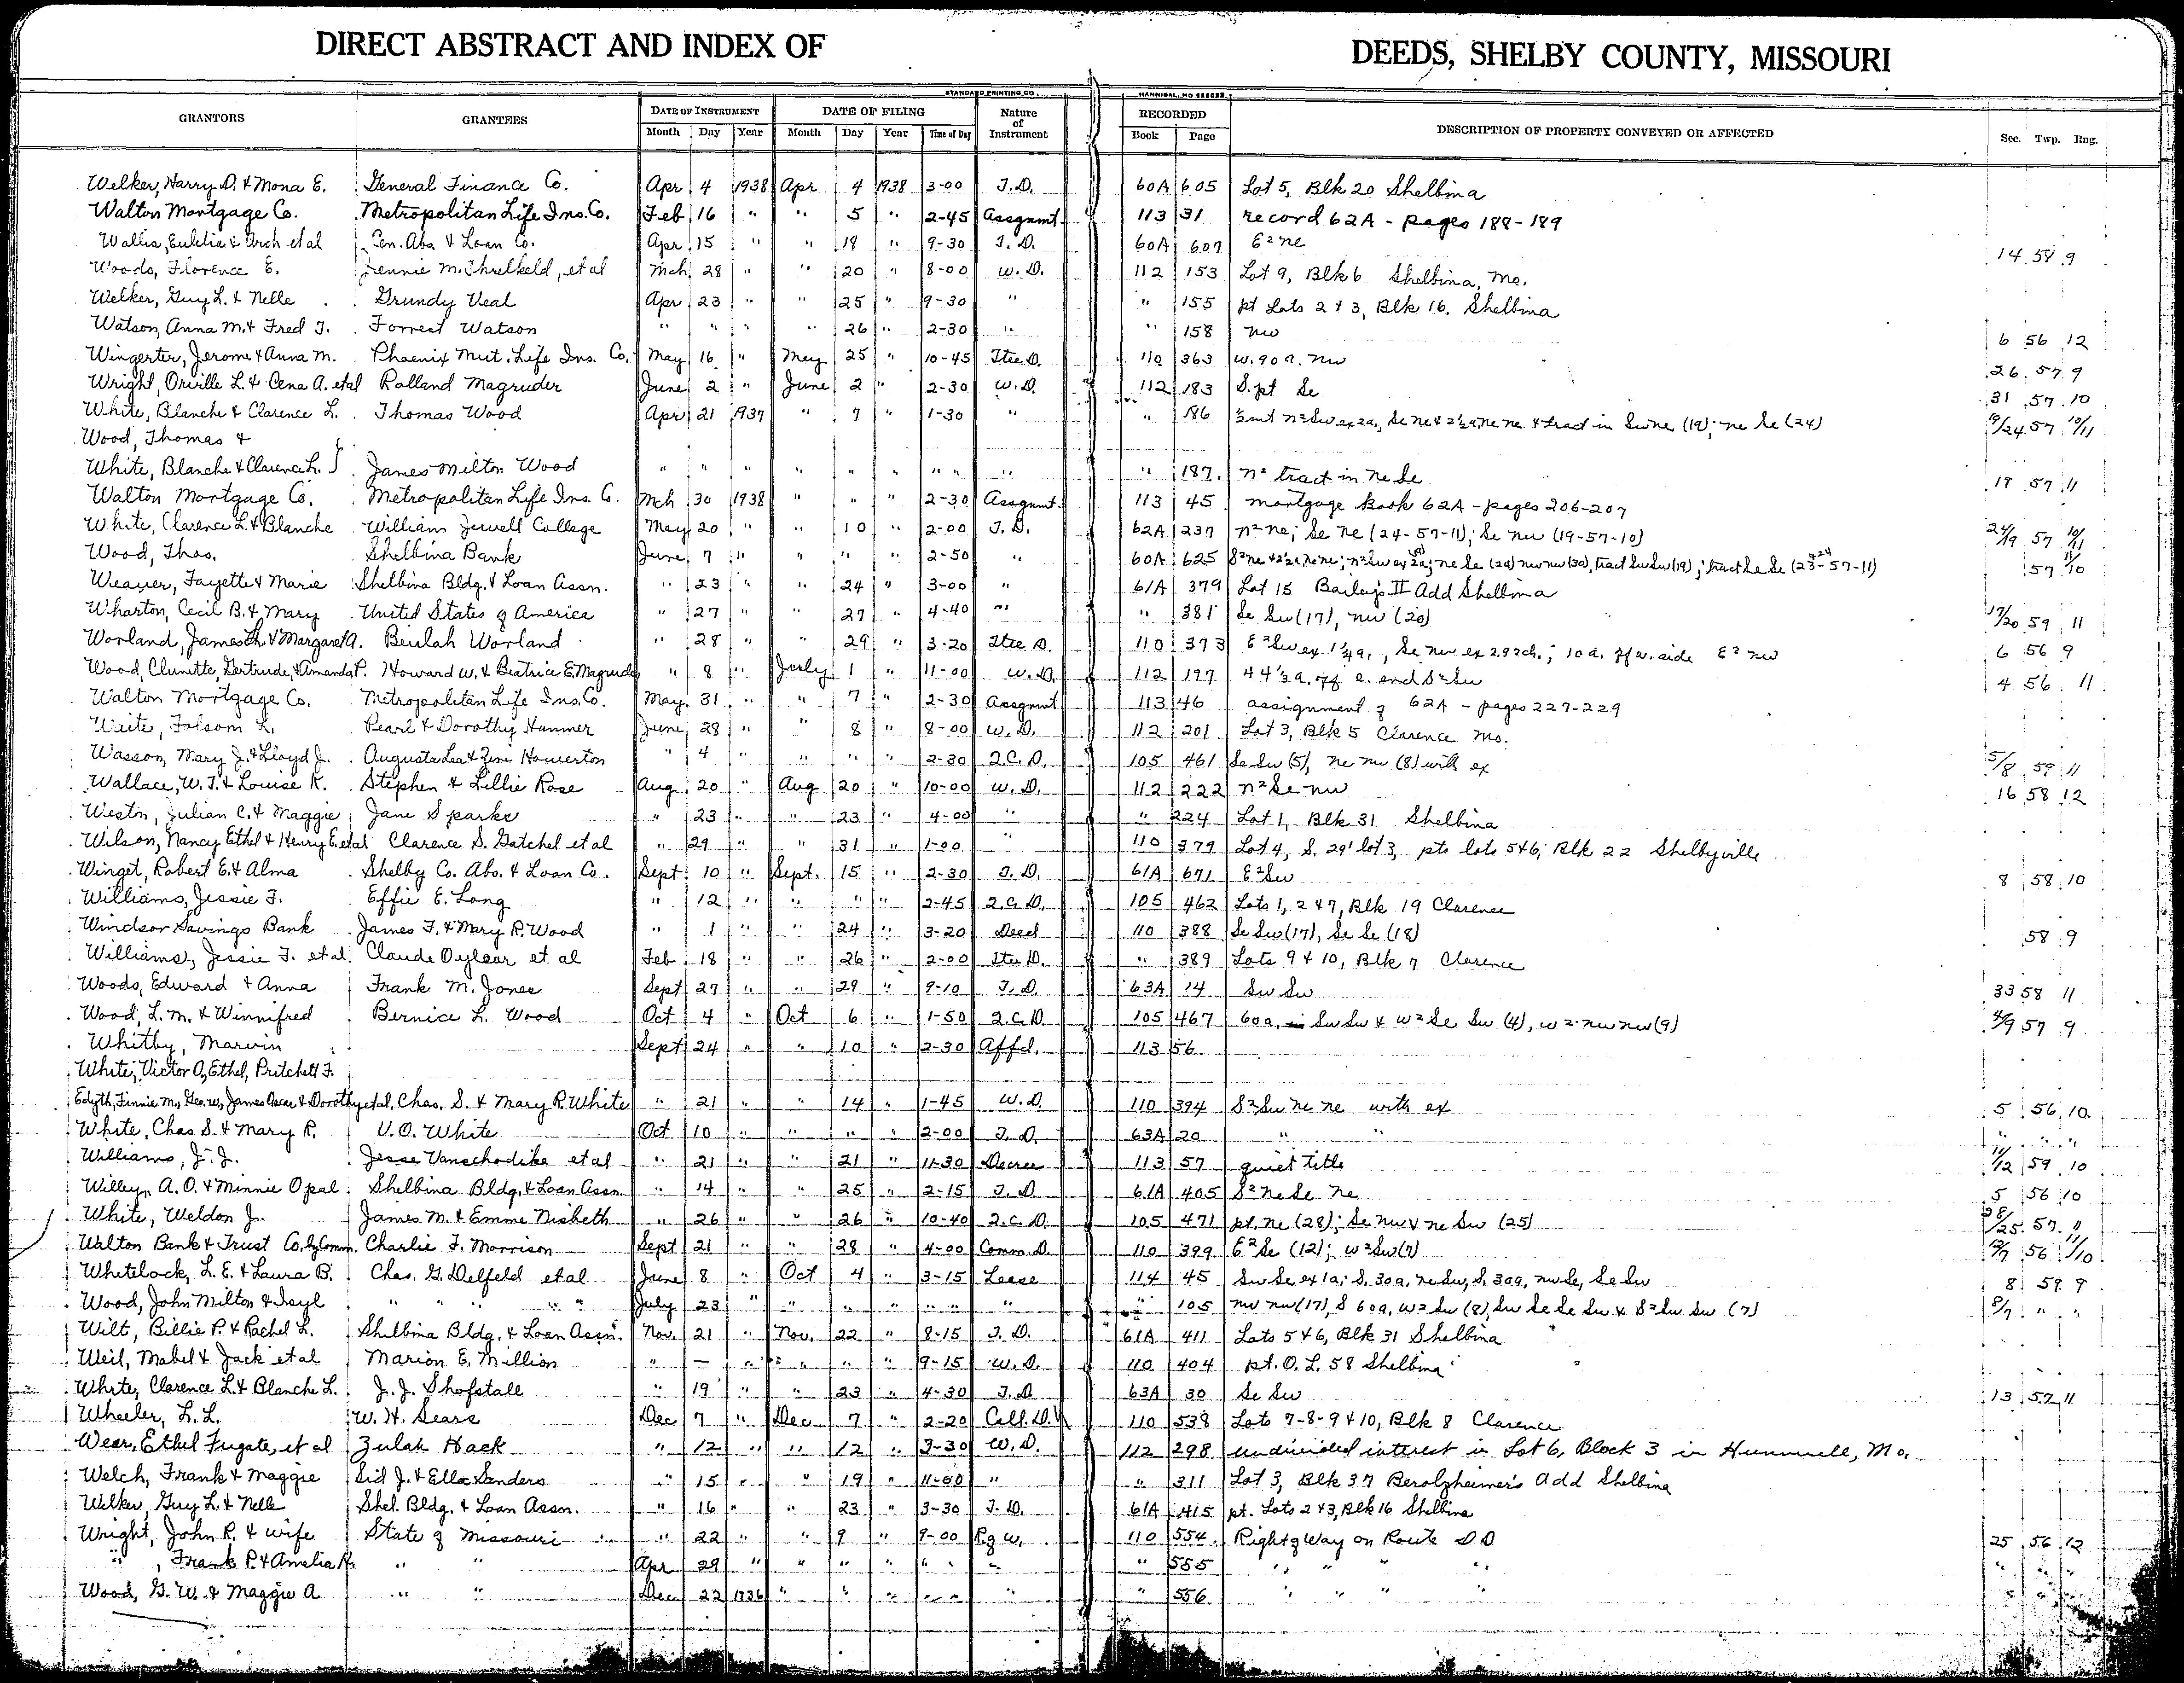 DIRECT ABSTRACT AND INDEX OF DEEDS, SHELBY COUNTY, MISSOURI
STANDARD PRINTING CO. HANNIBAL, MO
GRANTORS GRANTEES DATE OF INSTRUMENT DATE OF FILING Nature of Instrument RECORDED DESCRIPTION OF PROPERTY CONVEYED OR AFFECTED Sec. Twp. Rng.
Month Day Year Month Day Year Time of Day Book Page
Welker, Harry D. & Mona E. General Finance Co. Apr 4 1938 Apr 4 1938 3-00 T.D. 60A 605 Lot 5, Blk 20 Shelbina
Walton Mortgage Co. Metropolitan Life Ins. Co. Feb 16 " " 5 " 2-45 Assgnmt. 113 31 record 62A - pages 188-189
Wallis, Eulelia & Arch et al Cen. Abs. & Loan Co. Apr 15 " " 18 " 9-30 T.D. 60A 607 E² ne 14 58 9
Woods, Florence E. Jennie M. Threlkeld, et al Mch 28 " " 20 " 8-00 W.D. 112 153 Lot 9, Blk 6 Shelbina, Mo.
Welker, Guy L. & Nelle Grundy Veal Apr 23 " " 25 " 9-30 " " 155 pt Lots 2 & 3, Blk 16, Shelbina
Watson, Anna M. & Fred T. Forrest Watson " " " " 26 " 2-30 " " 158 nw 6 56 12
Wingerter, Jerome & Anna M. Phoenix Mut. Life Ins. Co. May 16 " May 25 " 10-45 Ttee D. 110 363 W. 90 a. nw 26 57 9
Wright, Orville L. & Cena A. et al Rolland Magruder June 2 " June 2 " 2-30 W.D. 112 183 S. pt Se 31 57 10
White, Blanche & Clarence L. Thomas Wood Apr 21 1937 " 7 " 1-30 " " 186 ½ int n² Sw ex 2a, Se ne & 2½a, ne ne & tract in Sw ne (19); ne Se (24) 19/24 57 10/11
Wood, Thomas &
White, Blanche & Clarence L. } James Milton Wood " " " " " " " " " " 187 n² tract in ne Se 19 57 11
Walton Mortgage Co. Metropolitan Life Ins. Co. Mch 30 1938 " " " 2-30 Assgnmt. 113 45 mortgage book 62A - pages 206-207
White, Clarence L. & Blanche William Jewell College May 20 " " 10 " 2-00 T.D. 62A 237 n² ne; Se ne (24-57-11); Se nw (19-57-10) 24/19 57 10/11
Wood, Thos. Shelbina Bank June 7 " " " " 2-50 " 60A 625 S² ne & 2½a ne ne; n² Sw ex 2a; ne Se (24) nw nw (30), tract Sw Sw (19); tract Se Se (23-57-11) 57 11/10
Weaver, Fayette & Marie Shelbina Bldg. & Loan Assn. " 23 " " 24 " 3-00 " 61A 379 Lot 15 Bailey's II Add Shelbina
Wharton, Cecil B. & Mary United States of America " 27 " " 27 " 4-40 " " 381 Se Sw (17), nw (20) 17/20 59 11
Worland, James Th. & Margaret A. Beulah Worland " 28 " " 29 " 3-20 Ttee D. 110 373 E² Sw ex 1¼a., Se nw ex 292ch.; 10 a. off w. side E² nw 6 56 9
Wood, Clunette, Gertrude, & Amanda P. Howard W. & Beatrice E. Magruder " 8 " July 1 " 11-00 W.D. 112 197 44⅓a. off e. end S² Sw 4 56 11
Walton Mortgage Co. Metropolitan Life Ins. Co. May 31 " " 7 " 2-30 Assgnmt 113 46 assignment of 62A - pages 227-229
Waite, Folsom L. Pearl & Dorothy Hanner June 28 " " 8 " 8-00 W.D. 112 201 Lot 3, Blk 5 Clarence Mo.
Wasson, Mary J. & Lloyd J. Augusta Lea & Zeni Howerton " 4 " " " " 2-30 Q.C.D. 105 461 Se Sw (5), ne nw (8) with ex 5/8 59 11
Wallace, W.T. & Louise K. Stephen & Lillie Rose Aug 20 " Aug 20 " 10-00 W.D. 112 222 n² Se nw 16 58 12
Weston, Julian C. & Maggie Jane Sparks " 23 " " 23 " 4-00 " " 224 Lot 1, Blk 31 Shelbina
Wilson, Nancy Ethel & Henry E. et al Clarence S. Gatchel et al " 29 " " 31 " 1-00 " 110 379 Lot 4, S. 29' lot 3, pts lots 5&6, Blk 22 Shelbyville
Winget, Robert E. & Alma Shelby Co. Abs. & Loan Co. Sept 10 " Sept. 15 " 2-30 T.D. 61A 671 E² Sw 8 58 10
Williams, Jessie F. Effie E. Long " 12 " " " " 2-45 Q.C.D. 105 462 Lots 1, 2 & 7, Blk 19 Clarence
Windsor Savings Bank James F. & Mary R. Wood " 1 " " 24 " 3-20 Deed 110 388 Se Sw (17), Se Se (18) 58 9
Williams, Jessie F. et al Claude Oylear et al Feb 18 " " 26 " 2-00 Ttee D. " 389 Lots 9 & 10, Blk 7 Clarence
Woods, Edward & Anna Frank M. Jones Sept 27 " " 29 " 9-10 T.D. 63A 14 Sw Sw 33 58 11
Wood, L.M. & Winnifred Bernice L. Wood Oct 4 " Oct 6 " 1-50 Q.C.D. 105 467 60a, Sw Sw & W² Se Sw (4), w² nw nw (9) 4/9 57 9
Whitby, Marvin Sept 24 " " 10 " 2-30 Affd. 113 56
White, Victor O, Ethel, Pritchett F.
Edyth, Finnie M., Geo. W., James Oscar & Dorothy et al, Chas. S. & Mary R. White " 21 " " 14 " 1-45 W.D. 110 394 S² Sw ne ne with ex 5 56 10
White, Chas S. & Mary R. V.O. White Oct 10 " " " " 2-00 T.D. 63A 20 " " " " "
Williams, J.J. Jesse Vanschodike et al " 21 " " 21 " 11-30 Decree 113 57 quiet title 11/12 59 10
Willey, A.O. & Minnie Opal Shelbina Bldg. & Loan Assn. " 14 " " 25 " 2-15 T.D. 61A 405 S² ne Se ne 5 56 10
White, Weldon J. James M. & Emma Nisbeth " 26 " " 26 " 10-40 Q.C.D. 105 471 pt. ne (28); Se nw & ne Sw (25) 28/25 57 11
Walton Bank & Trust Co. by Comm. Charlie F. Morrison Sept 21 " " 28 " 4-00 Comm. D. 110 399 E² Se (12); w² Sw (7) 12/7 56 11/10
Whitelock, L.E. & Laura B. Chas. G. Delfeld et al June 8 " Oct 4 " 3-15 Lease 114 45 Sw Se ex 1a; S. 30a. ne Sw, S. 30a, nw Se, Se Sw 8 59 9
Wood, John Milton & Isyl " " " " " July 23 " " " " " " " 105 nw nw (17), S 60a, W² Sw (8), Sw Se Se Sw & S² Sw Sw (7) 8/7 " "
Wilt, Billie P. & Rachel L. Shelbina Bldg. & Loan Assn. Nov. 21 " Nov. 22 " 8-15 T.D. 61A 411 Lots 5&6, Blk 31 Shelbina
Weil, Mabel & Jack et al Marion E. Million " — " " " " 9-15 W.D. 110 404 pt. O.L. 58 Shelbina
White, Clarence L. & Blanche L. J.J. Shofstall " 19 " " 23 " 4-30 T.D. 63A 30 Se Sw 13 57 11
Wheeler, L.L. W.H. Sears Dec 7 " Dec 7 " 2-20 Coll. D. 110 538 Lots 7-8-9 & 10, Blk 8 Clarence
Wear, Ethel Fugate, et al Zulah Hack " 12 " " 12 " 3-30 W.D. 112 298 undivided interest in Lot 6, Block 3 in Hunnewell, Mo.
Welch, Frank & Maggie Sid J. & Ella Sanders " 15 " " 19 " 11-00 " " 311 Lot 3, Blk 37 Berolzheimer's Add Shelbina
Welker, Guy L. & Nelle Shel. Bldg. & Loan Assn. " 16 " " 23 " 3-30 T.D. 61A 415 pt. Lots 2&3, Blk 16 Shelbina
Wright, John R. & wife State of Missouri " 22 " " 9 " 9-00 R of W. 110 554 Right of Way on Route DD 25 56 12
" , Frank P. & Amelia H. " " Apr 29 " " " " " " " 555 " " " " " " "
Wood, G.W. & Maggie A. " " Dec 22 1936 " " " " " " 556 " " " " " " "